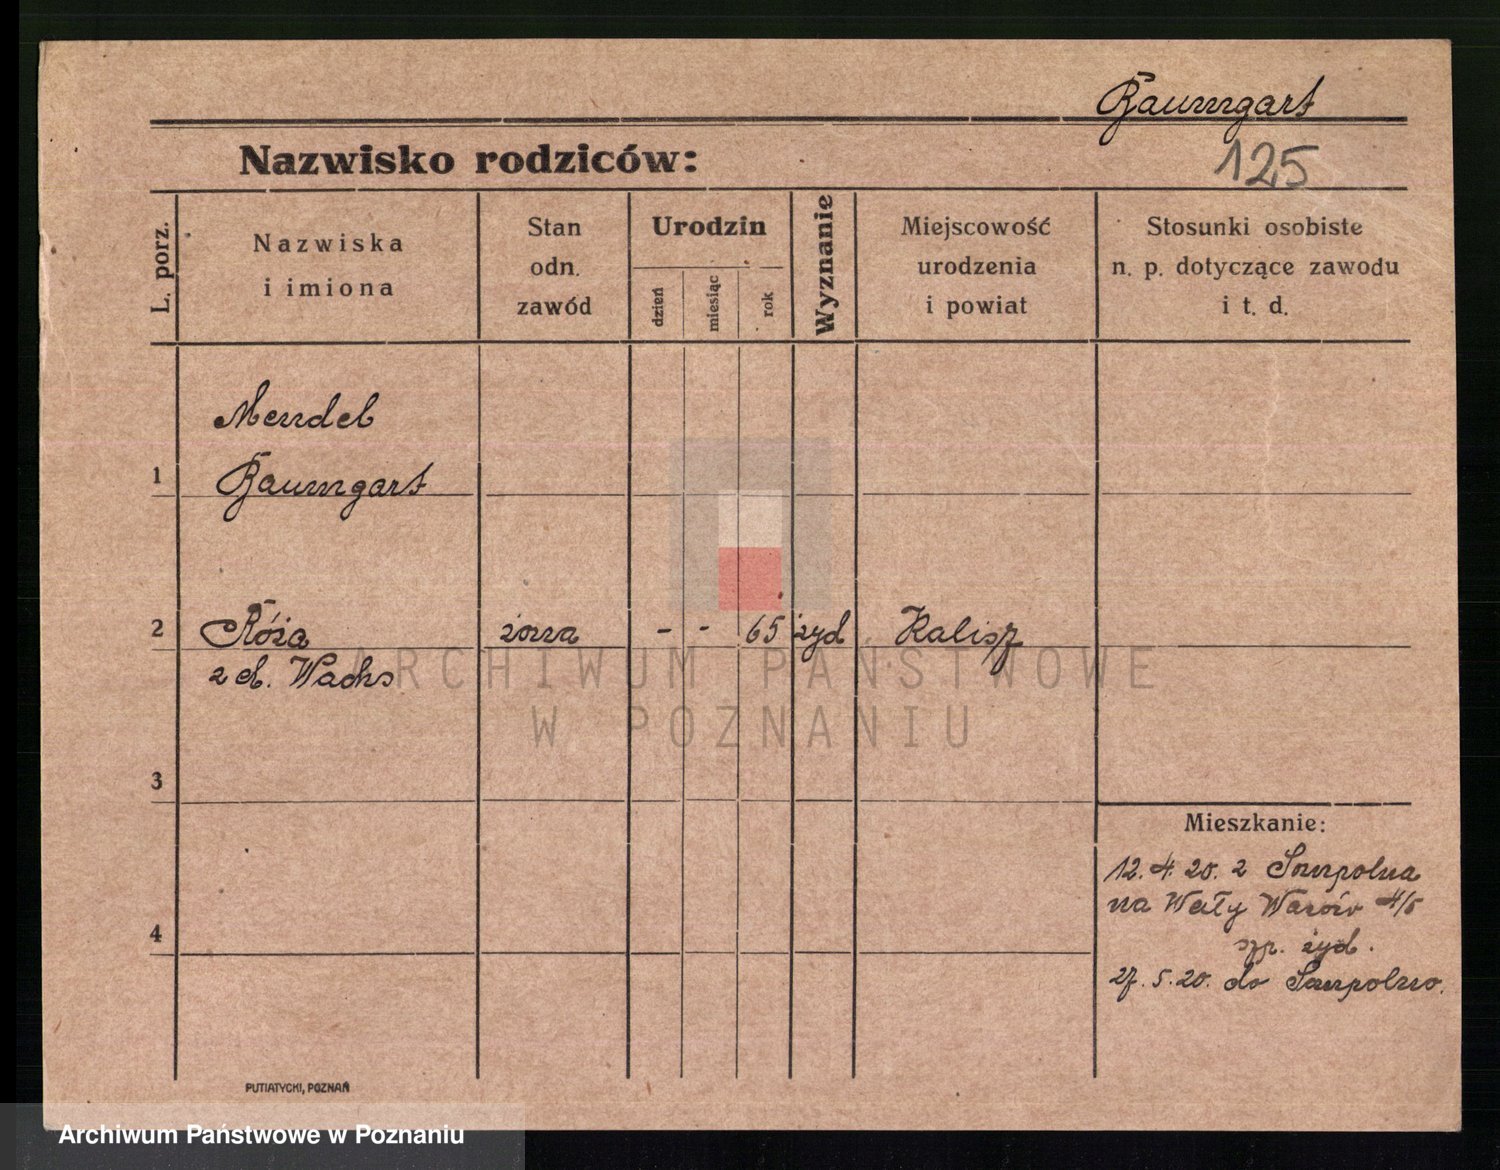 Baumgart
Nazwisko rodziców:
125
L. porz.
Nazwiska
i imiona
Stan
odn.
zawód
Urodzin
dzień
miesiąc
rok
Wyznanie
Miejscowość
urodzenia
i powiat
Stosunki osobiste
n. p. dotyczące zawodu
i t. d.
Mendel
1 Baumgart
2 Róża żona - - 65 żyd Kalisz
z d. Wachs
3
4
Mieszkanie:
12. 4. 20. z Sompolna
na Wały Wazów 4/5
szp. żyd.
27. 5. 20. do Sompolno.
PUTIATYCKI, POZNAŃ
ARCHIWUM PAŃSTWOWE
W POZNANIU
Archiwum Państwowe w Poznaniu